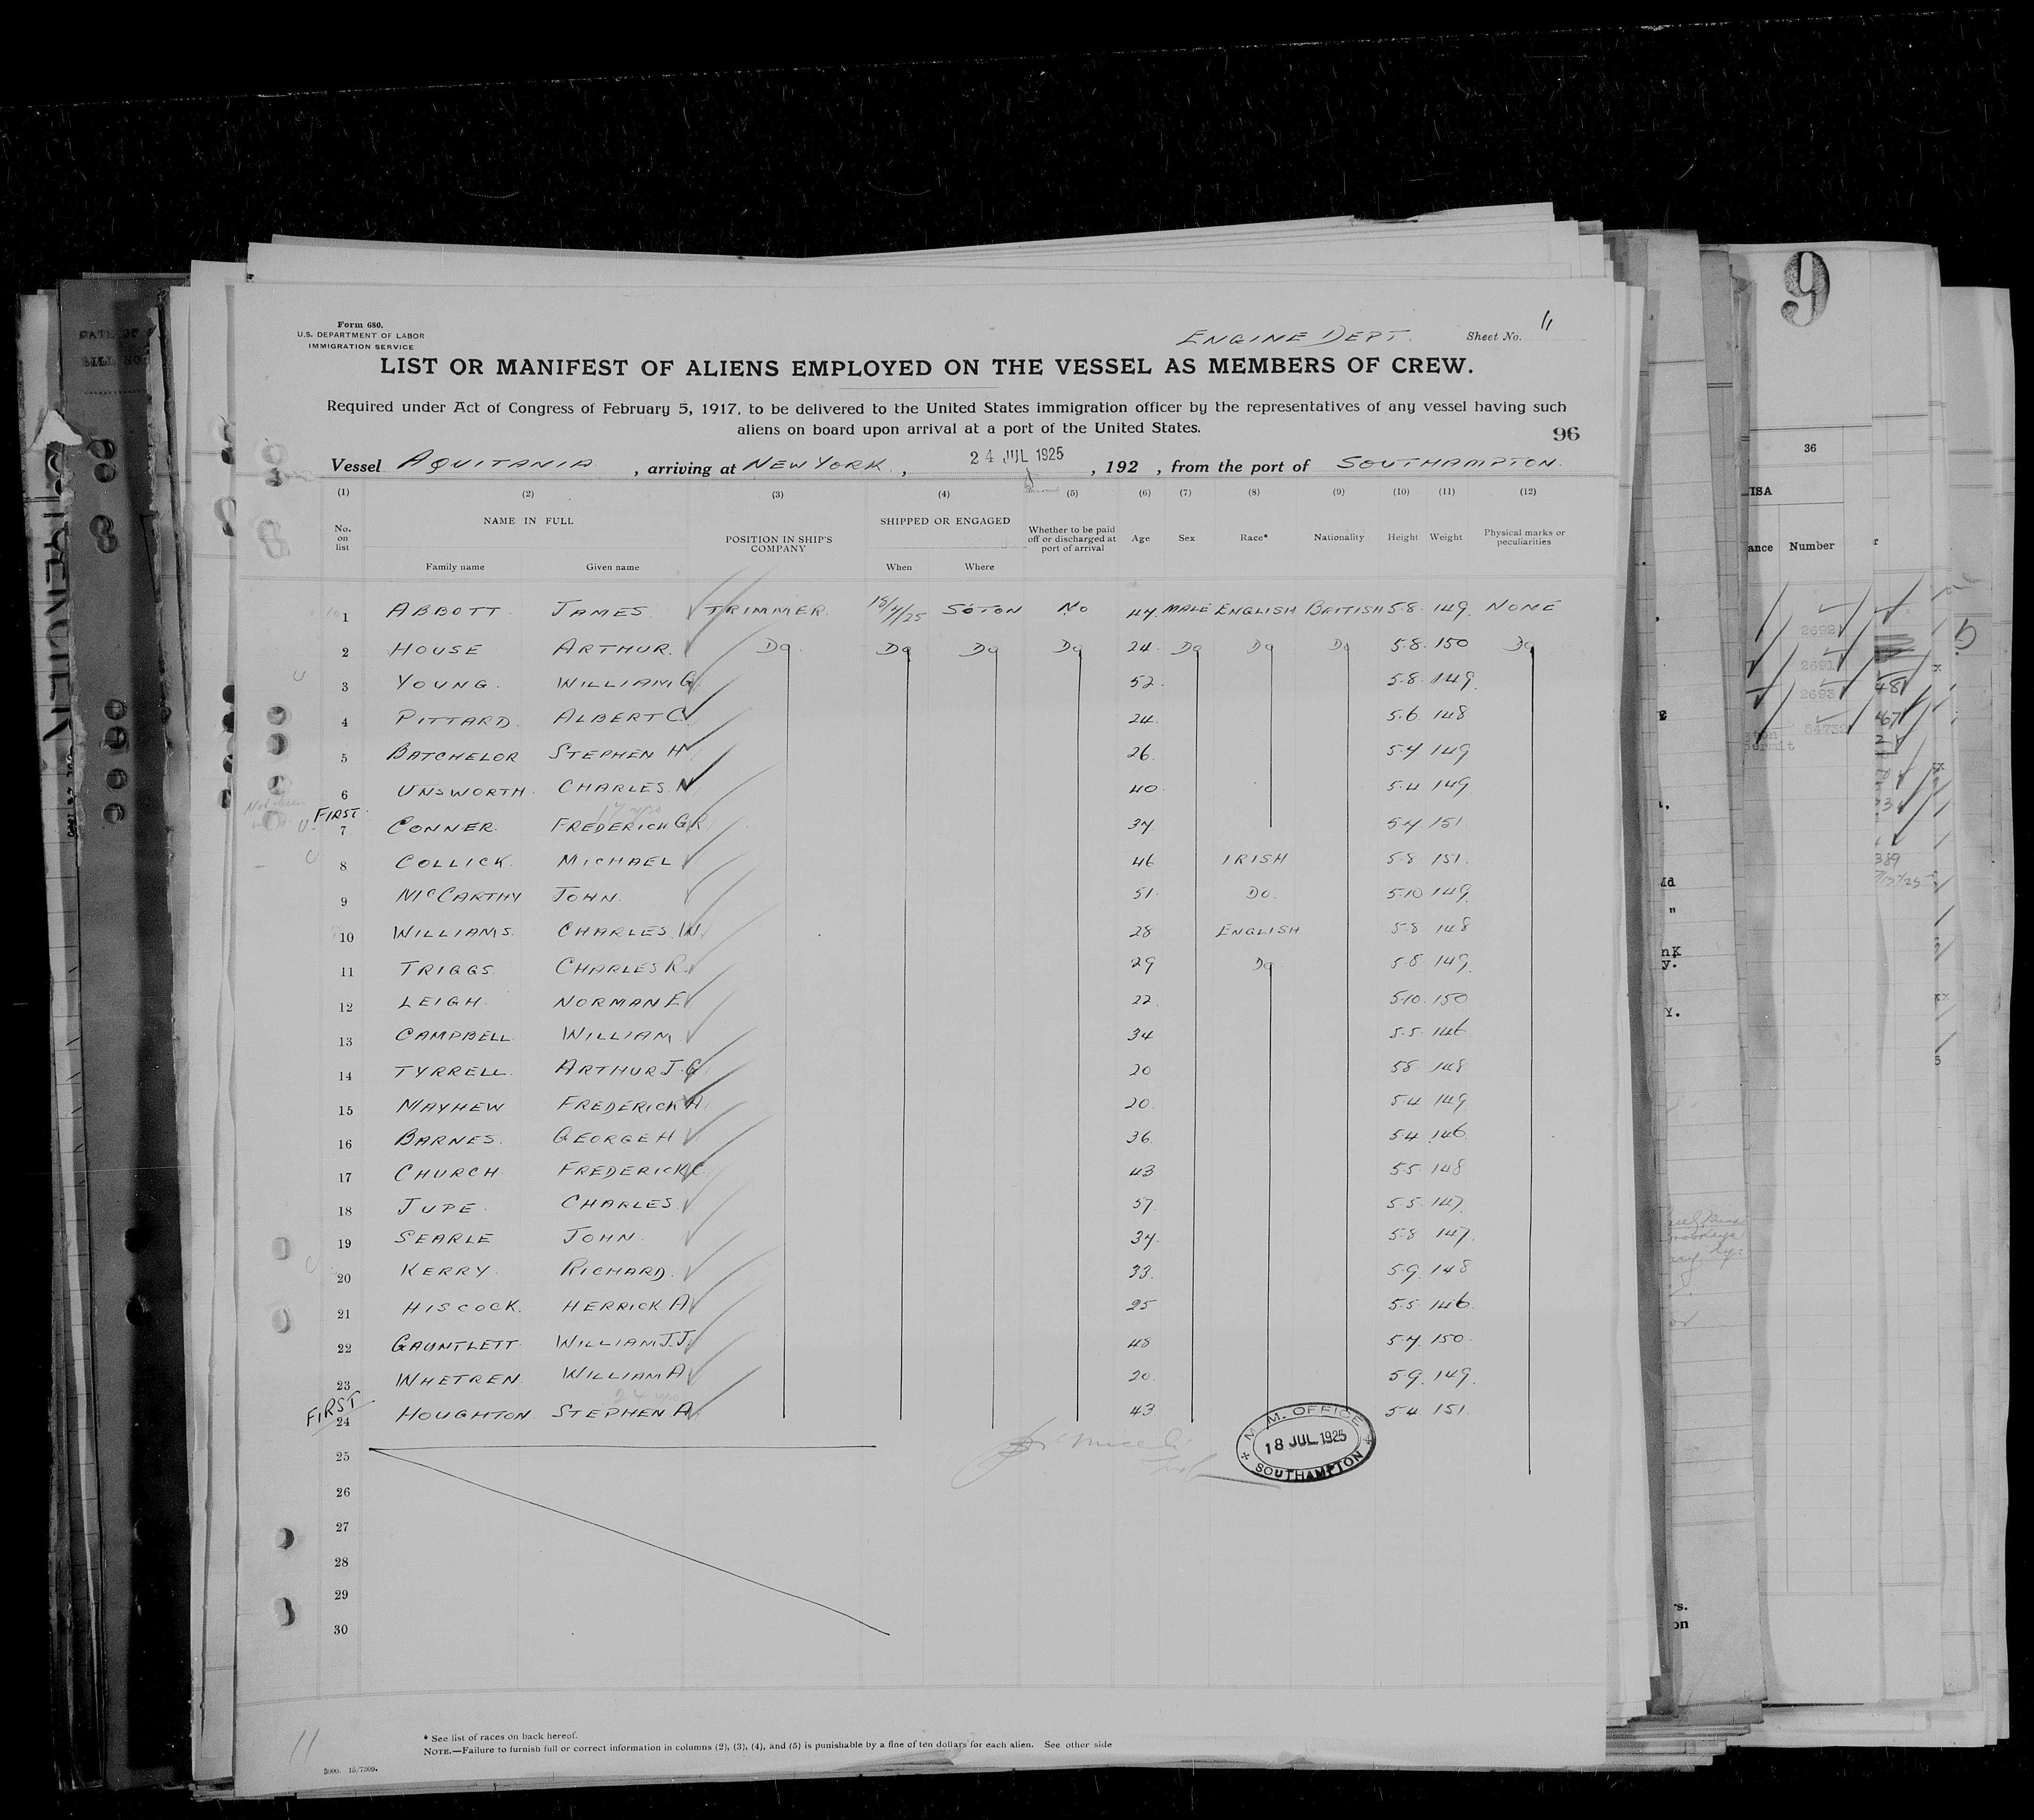 Form 680.
U.S. DEPARTMENT OF LABOR
IMMIGRATION SERVICE
ENGINE DEPT. Sheet No. 11
LIST OR MANIFEST OF ALIENS EMPLOYED ON THE VESSEL AS MEMBERS OF CREW.
Required under Act of Congress of February 5, 1917, to be delivered to the United States immigration officer by the representatives of any vessel having such
aliens on board upon arrival at a port of the United States.
96
Vessel AQUITANIA, arriving at NEW YORK, 24 JUL 1925, 192 , from the port of SOUTHAMPTON.
(1) (2) (3) (4) (5) (6) (7) (8) (9) (10) (11) (12)
No. on list NAME IN FULL Family name Given name POSITION IN SHIP'S COMPANY SHIPPED OR ENGAGED When Where Whether to be paid off or discharged at port of arrival Age Sex Race* Nationality Height Weight Physical marks or peculiarities
1 ABBOTT JAMES TRIMMER 18/7/25 SOTON NO 47 MALE ENGLISH BRITISH 5.8 149 NONE
2 HOUSE ARTHUR. Do Do Do Do 24 Do Do Do 5.8 150 Do
3 YOUNG. WILLIAM G. 52 5.8 149
4 PITTARD. ALBERT C. 24 5.6 148
5 BATCHELOR STEPHEN H 26 5.7 149
6 UNSWORTH. CHARLES N 40 5.4 149
17 yrs
FIRST
7 CONNER. FREDERICK G.R. 37 5.7 151
8 COLLICK. MICHAEL 46 IRISH 5.8 151
9 McCARTHY JOHN. 51 DO. 5.10 149
10 WILLIAMS. CHARLES W. 28 ENGLISH 5.8 148
11 TRIGGS. CHARLES R. 29 Do 5.8 149
12 LEIGH NORMAN E 22 5.10 150
13 CAMPBELL WILLIAM 34 5.5 146
14 TYRRELL. ARTHUR J.G. 20 5.8 148
15 MAYHEW FREDERICK A. 20 5.4 149
16 BARNES. GEORGE H 36 5.4 146
17 CHURCH FREDERICK C. 43 5.5 148
18 JUPE CHARLES 57 5.5 147
19 SEARLE JOHN. 37 5.8 147
20 KERRY. RICHARD. 33 5.9 148
21 HISCOCK. HERRICK. A 25 5.5 146
22 GAUNTLETT. WILLIAM J.J. 48 5.7 150
23 WHETREN WILLIAM A 20 5.9 149
24 yrs
FIRST
24 HOUGHTON STEPHEN A. 43 5.4 151
M. M. OFFICE
18 JUL 1925
SOUTHAMPTON
25
26
27
28
29
30
* See list of races on back hereof.
NOTE.—Failure to furnish full or correct information in columns (2), (3), (4), and (5) is punishable by a fine of ten dollars for each alien. See other side
11
3000. 15/7309.
9
36
ISA
ance Number
2692
2691
2693
54732
ermit